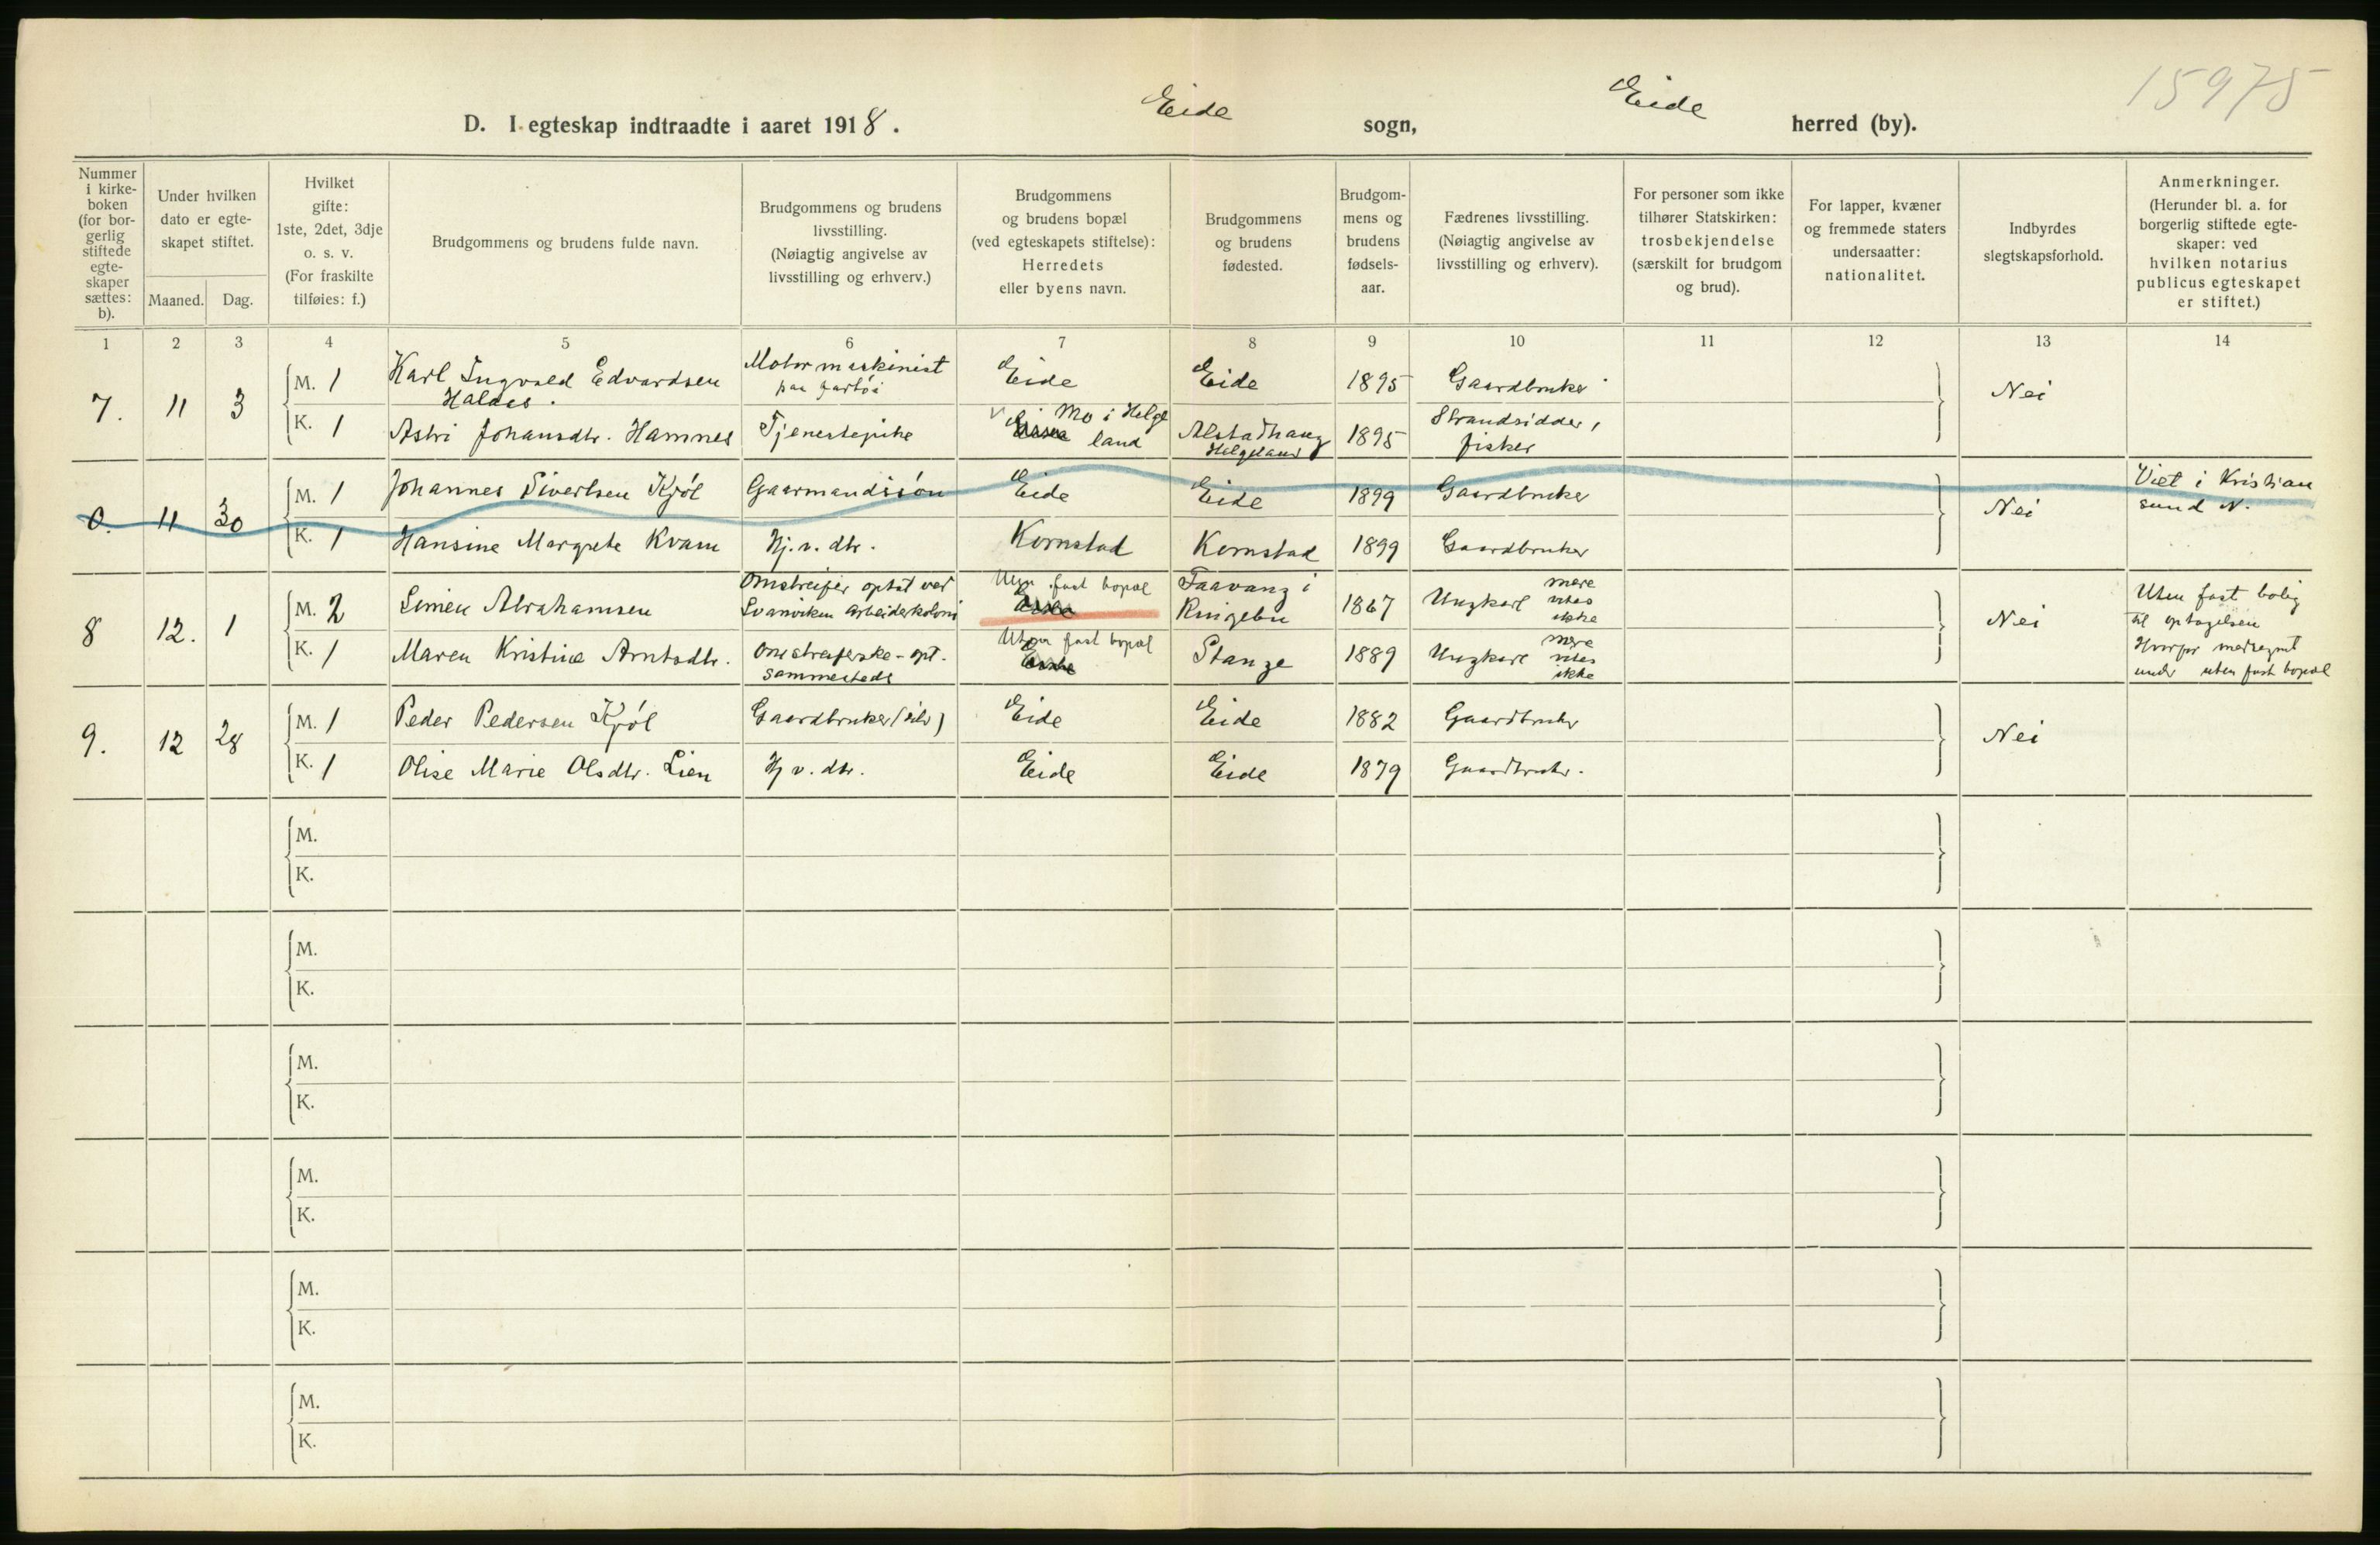 15975
D. I egteskap indtraadte i aaret 1918. Eide sogn, Eide herred (by).
Nummer i kirkeboken (for borgerlig stiftede egteskaper sættes: b).
Under hvilken dato er egteskapet stiftet.
Maaned. Dag.
Hvilket gifte: 1ste, 2det, 3dje o. s. v. (For fraskilte tilføies: f.)
Brudgommens og brudens fulde navn.
Brudgommens og brudens livsstilling. (Nøiagtig angivelse av livsstilling og erhverv.)
Brudgommens og brudens bopæl (ved egteskapets stiftelse): Herredets eller byens navn.
Brudgommens og brudens fødested.
Brudgommens og brudens fødselsaar.
Fædrenes livsstilling. (Nøiagtig angivelse av livsstilling og erhverv).
For personer som ikke tilhører Statskirken: trosbekjendelse (særskilt for brudgom og brud).
For lapper, kvæner og fremmede staters undersaatter: nationalitet.
Indbyrdes slegtskapsforhold.
Anmerkninger. (Herunder bl. a. for borgerlig stiftede egteskaper: ved hvilken notarius publicus egteskapet er stiftet.)
1 2 3 4 5 6 7 8 9 10 11 12 13 14
7. 11 3 M. 1 Karl Ingvald Edvardsen Haldes. Motormaskinist paa fartøi Eide Eide 1895 Gaardbruker Nei
K. 1 Astri Johansdtr. Hamnes Tjenestepike Mo i Helgeland Alstadhaug Helgeland 1895 Strandsidder, fisker
0. 11 30 M. 1 Johannes Sivertsen Kjøl Gaarmandssøn Eide Eide 1899 Gaardbruker Nei Viet i Kristiansund N.
K. 1 Hansine Margrete Kvam Hj. v. dtr. Kornstad Kornstad 1899 Gaardbruker
8 12. 1 M. 2 Simen Abrahamsen Omstreifer optat ved Svanviken Arbeiderkoloni Uten fast bopæl Faavang i Ringebu 1867 Ungkarl mere vites ikke Nei Uten fast bolig til optagelsen Hvorfor medregnet under uten fast bopæl
K. 1 Maren Kristine Arntsdtr. Omstreiferske - opt. sammesteds Uten fast bopæl Stange 1889 Ungkarl mere vites ikke
9. 12 28 M. 1 Peder Pedersen Kjøl Gaardbruker (selv) Eide Eide 1882 Gaardbruker Nei
K. 1 Olise Marie Olsdtr. Lien Hj v. dtr. Eide Eide 1879 Gaardbruker.
M.
K.
M.
K.
M.
K.
M.
K.
M.
K.
M.
K.